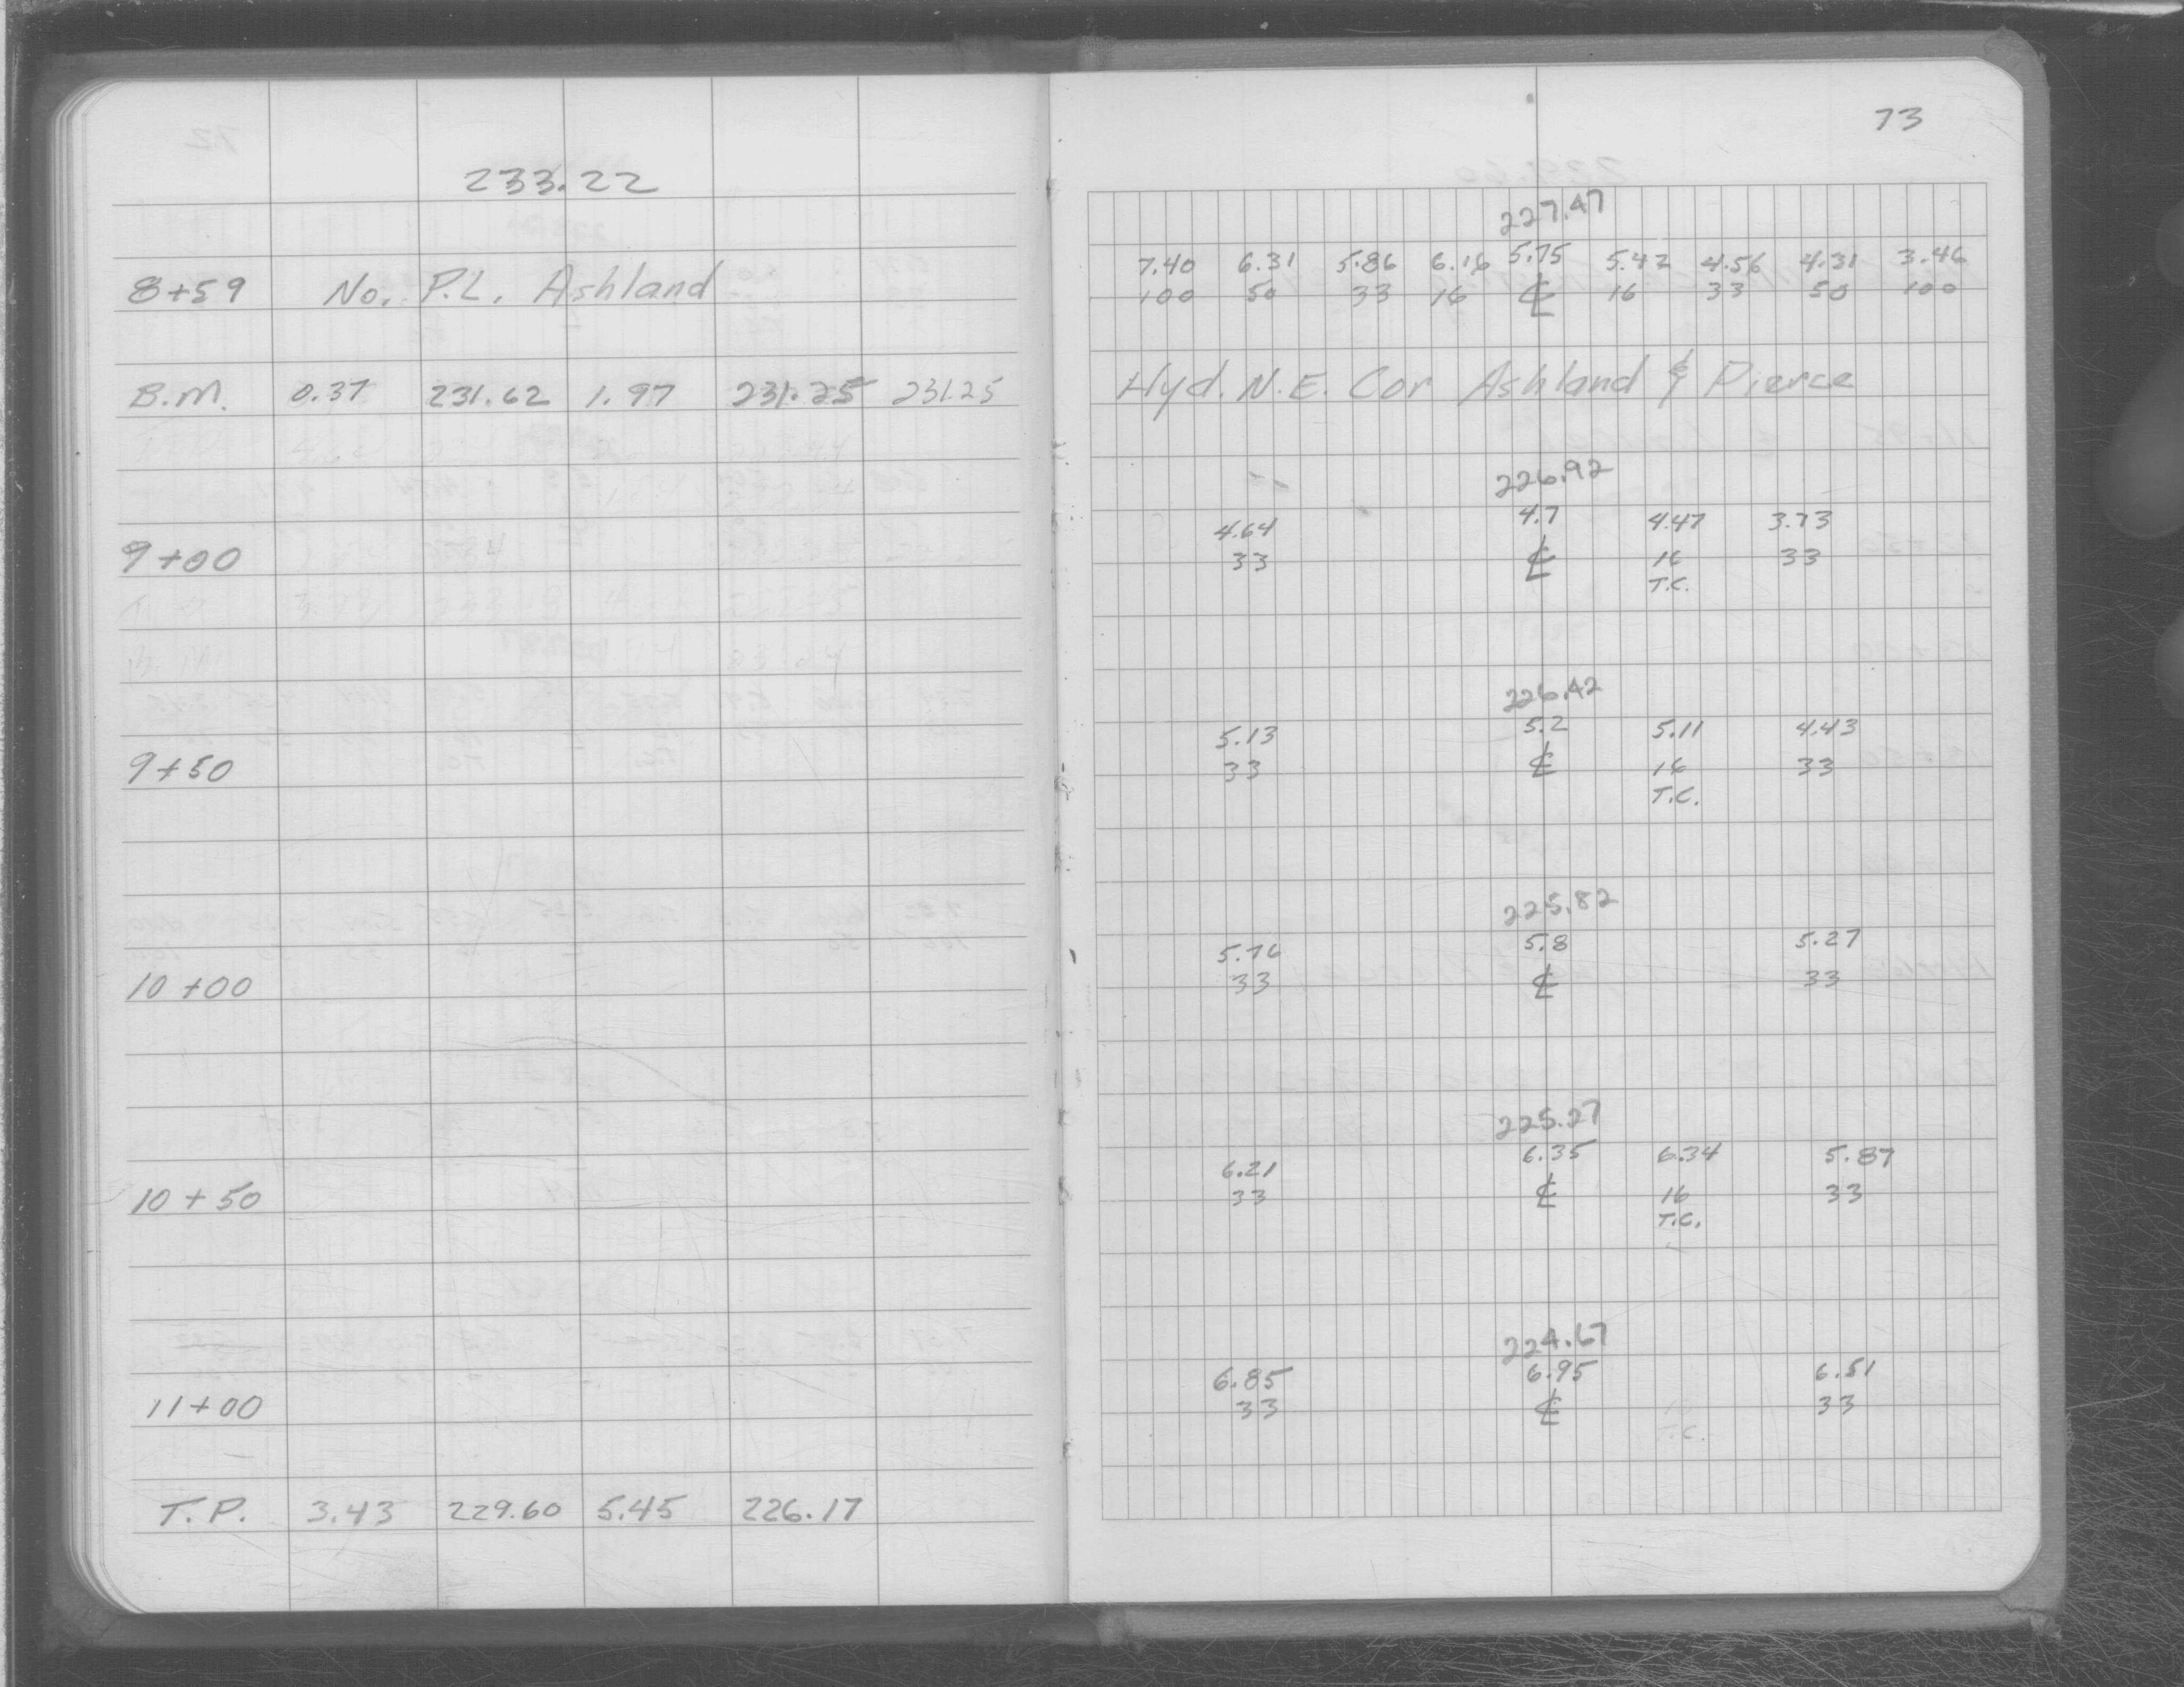 233.22
8+59 No. P.L. Ashland
B.M. 0.37 231.62 1.97 231.25 231.25
9+00
9+50
10+00
10+50
11+00
T.P. 3.43 229.60 5.45 226.17
73
227.47
7.40 6.31 5.86 6.16 5.75 5.42 4.56 4.31 3.46
100 50 33 16 ℄ 16 33 50 100
Hyd. N.E. Cor Ashland & Pierce
226.92
4.64 4.7 4.47 3.73
33 ℄ 16 33
T.C.
226.42
5.13 5.2 5.11 4.43
33 ℄ 16 33
T.C.
225.82
5.76 5.8 5.27
33 ℄ 33
225.27
6.21 6.35 6.34 5.87
33 ℄ 16 33
T.C.
224.67
6.85 6.95 6.51
33 ℄ 33
T.C.